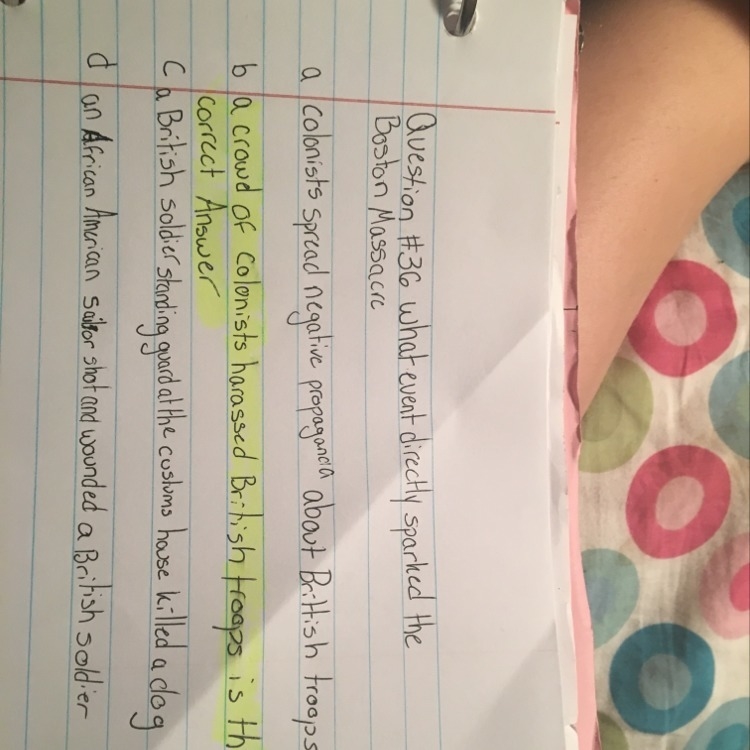 Question #36 what event directly sparked the
Boston Massacre
a colonists spread negative propaganda about British troops
b a crowd of colonists harassed British troops is th
correct Answer
c a British soldier standing guard at the customs house killed a dog
d an African American sailor shot and wounded a British soldier